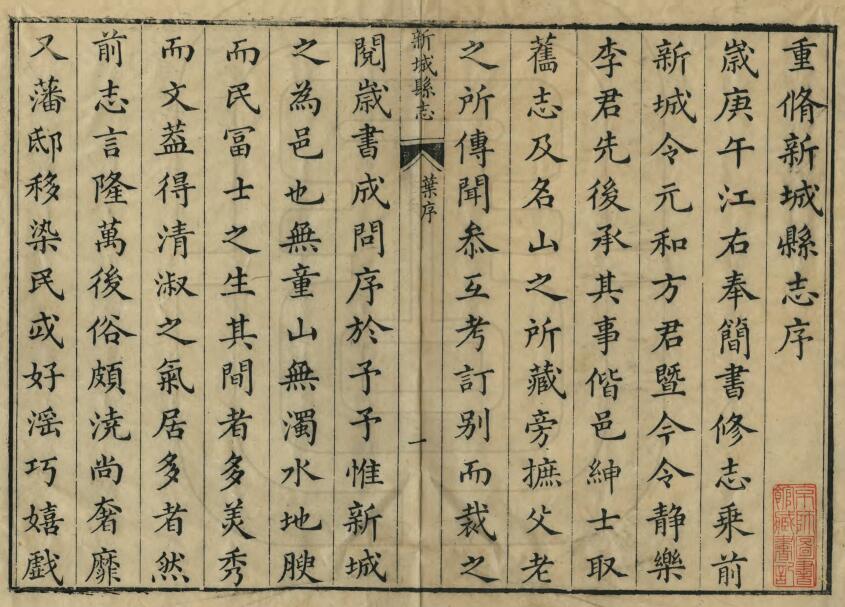 重脩新城縣志序
歲庚午江右奉簡書修志乘前
新城令元和方君暨今令静樂
李君先後承其事偕邑紳士取
舊志及名山之所藏旁摭父老
之所傳聞叅互考訂别而裁之
新城縣志
葉序
一
閱歲書成問序於予予惟新城
之為邑也無童山無濁水地腴
而民冨士之生其間者多美秀
而文葢得清淑之氣居多者然
前志言隆萬後俗頗澆尚奢靡
又藩邸移染民或好滛巧嬉戲